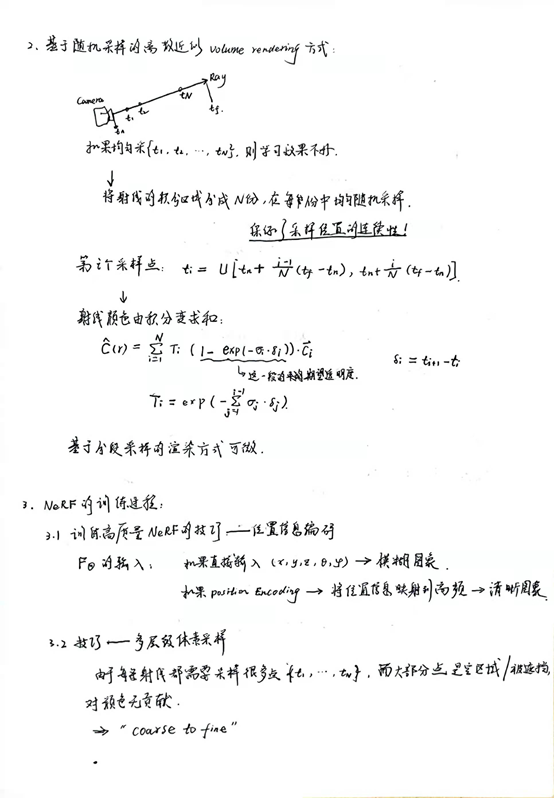 2. 基于随机采样的离散近似 volume rendering 方式:
Camera
Ray
tn t1 t2 tN tf.
如果均匀采{t1, t2, ..., tN}, 则学习效果不好.
↓
将射线的积分区域分成N份, 在每份中均匀随机采样.
保证了采样位置的连续性!
第i个采样点: ti = U[tn + (i-1)/N (tf - tn), tn + i/N (tf - tn)].
↓
射线颜色由积分变求和:
Ĉ(r) = Σ_{i=1}^{N} Ti (1 - exp(-σi·δi))·C⃗i δi = ti+1 - ti
↳ 这一段的期望透明度.
Ti = exp(-Σ_{j=1}^{i-1} σj·δj).
基于分段采样的渲染方式可微.
3. NeRF的训练过程:
3.1 训练高质量NeRF的技巧 —— 位置信息编码
FΘ的输入: 如果直接输入 (x, y, z, θ, φ) → 模糊图象.
如果 position Encoding → 将位置信息映射到高频 → 清晰图象.
3.2 技巧 —— 多层级体素采样
由于每条射线都需要采样很多点{t1, ..., tN}, 而大部分点是空区域/被遮挡,
对颜色无贡献.
⇒ "coarse to fine"